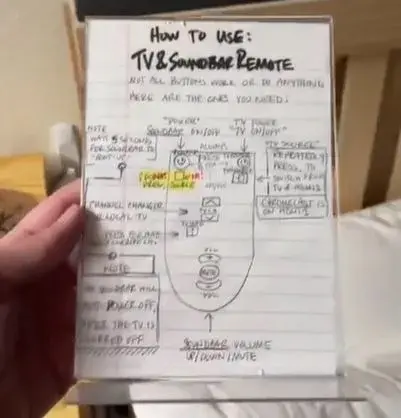 HOW TO USE:
TV & SOUNDBAR REMOTE
NOT ALL BUTTONS WORK OR DO ANYTHING
HERE ARE THE ONES YOU NEED:
NOTE
WAIT 5 SECONDS
FOR SOUNDBAR TO
"BOOT-UP"
"POWER"
SOUNDBAR ON/OFF
TV POWER
"TV ON/OFF"
ALWAYS
PRESS
SOURCE
"TV SOURCE"
REPEATEDLY
PRESS, TO
SWITCH FROM
TV & HDMI 1
CHROMECAST
IS ON HDMI 1
CHANNEL CHANGER
FOR LOCAL TV
NOTE
SOUNDBAR WILL
POWER OFF,
AFTER THE TV IS
POWERED OFF
VOL
MUTE
VOL
SOUNDBAR VOLUME
UP/DOWN/MUTE